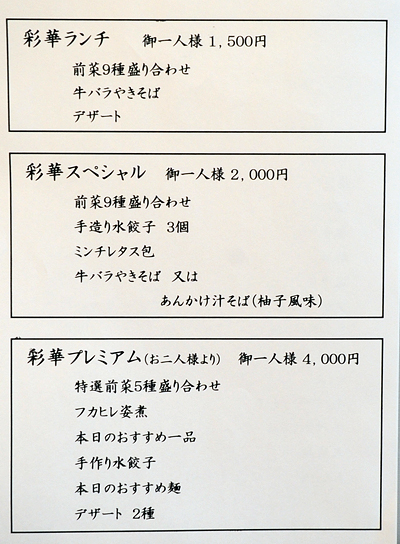 彩華ランチ 御一人様 1,500円
前菜9種盛り合わせ
牛バラやきそば
デザート
彩華スペシャル 御一人様 2,000円
前菜9種盛り合わせ
手造り水餃子 3個
ミンチレタス包
牛バラやきそば 又は
あんかけ汁そば(柚子風味)
彩華プレミアム(お二人様より) 御一人様 4,000円
特選前菜5種盛り合わせ
フカヒレ姿煮
本日のおすすめ一品
手作り水餃子
本日のおすすめ麺
デザート 2種